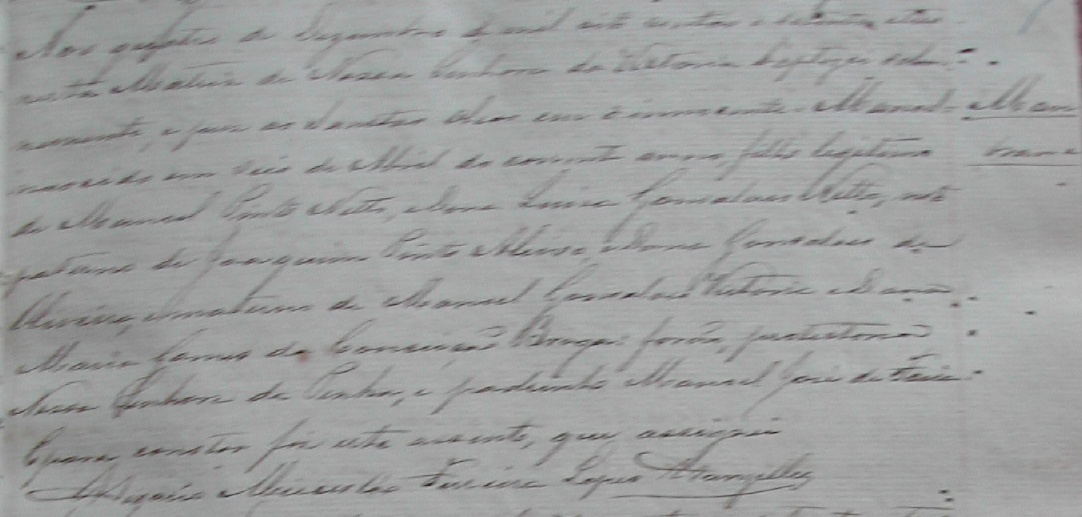 Aos quinse de Dezembro de mil oito centos e setenta e tres
nesta Matriz de Nossa Senhora da Victoria baptizei sole-
mnemente, e puz os Santos Oleos em o innocente - Manoel -
nascido em seis de Abril do corrente anno, filho legitimo
de Manoel Pinto Netto, e Dona Luiza Gonsalves Netto, neto
paterno de Joaquim Pinto e Dona Gonsalves de
Oliveira, e materno de Manoel Gonsalves Victoria e Dona
Maria Gomes da Conceição Braga: forão, protectora
Nossa Senhora da Penha, e padrinho Manoel José de Faria.
E para constar fiz este assento, que assignei
O Vigario Mieceslau Ferreira Lopes Wanzeller
Man